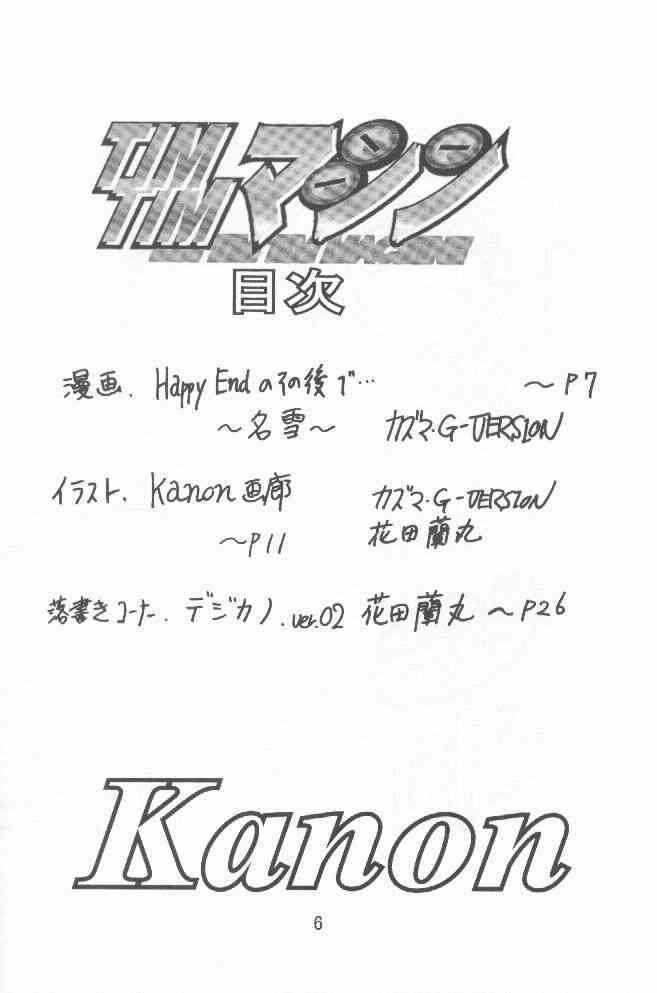 TIM
TIMマシン
目次
漫画. Happy Endのその後で… 〜P7
〜名雪〜 カズマ・G-VERSION
イラスト. Kanon画廊 カズマ・G-VERSION
〜P11 花田蘭丸
落書きコーナー. デジカノ.ver.02 花田蘭丸 〜P26
Kanon
6